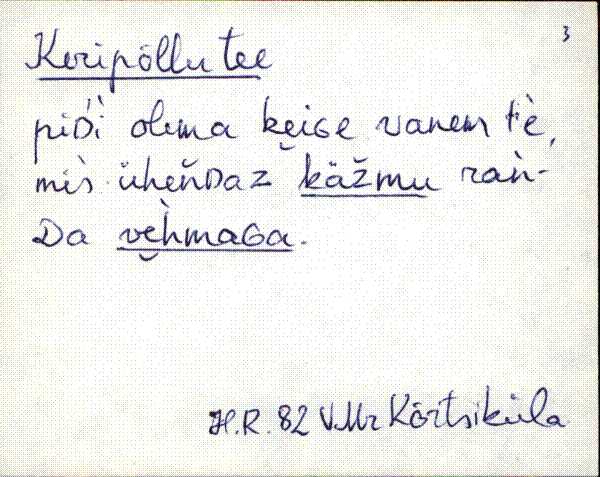 3
Keripõllu tee
piDi olema kęiGe vanem tiè,
mis ùheńDaz käžmu rań-
Da vęhmaGa.
H.R. 82 VMr Kõrtsiküla